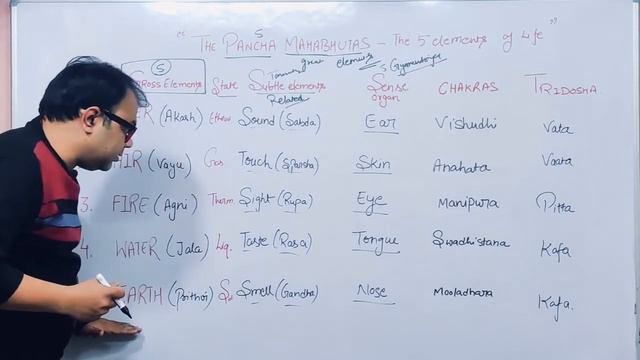 " THE PANCHA MAHABHUTAS – The 5 elements of Life "
5
great elements
5
Gross Elements State Subtle elements Sense organ CHAKRAS TRIDOSHA
Related
(Akash) Sound (Sabda) Ear Vishudhi Vata
AIR (Vayu) Gas Touch (Sparsha) Skin Anahata Vaata
3. FIRE (Agni) Therm. Sight (Rupa) Eye Manipura Pitta
4. WATER (Jala) Liq. Taste (Rasa) Tongue Swadhistana Kafa
EARTH (Prithvi) Smell (Gandha) Nose Mooladhara Kafa.